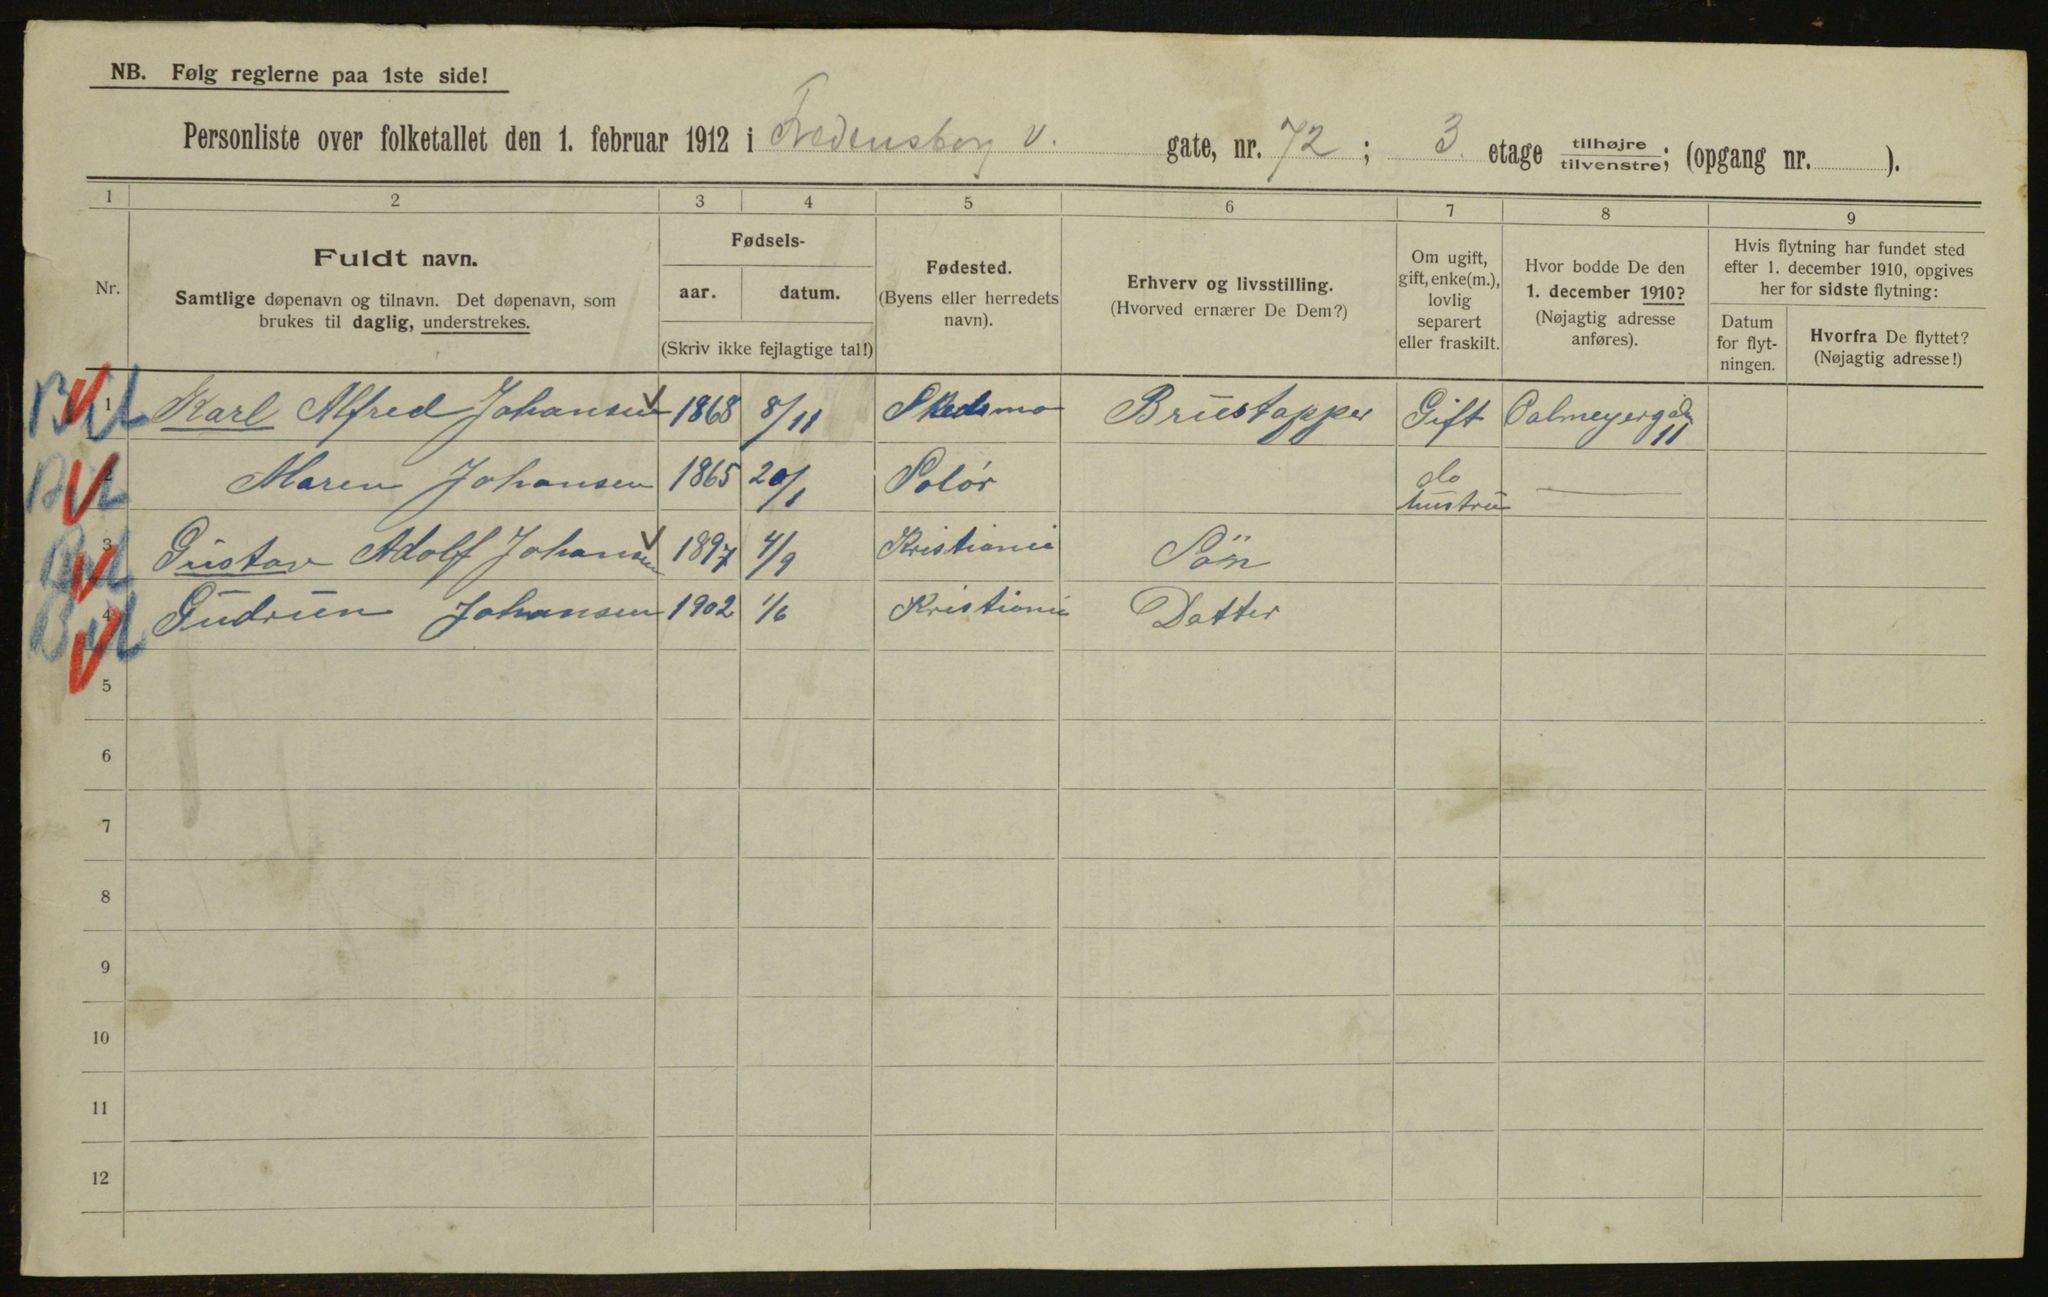 NB. Følg reglerne paa 1ste side!
Personliste over folketallet den 1. februar 1912 i Fredensborg v. gate, nr. 72; 3. etage tilhøjre/tilvenstre; (opgang nr. ).
1 2 3 4 5 6 7 8 9
Nr.
Fuldt navn.
Samtlige døpenavn og tilnavn. Det døpenavn, som
brukes til daglig, understrekes.
Fødsels-
aar. datum.
(Skriv ikke fejlagtige tal!)
Fødested.
(Byens eller herredets
navn).
Erhverv og livsstilling.
(Hvorved ernærer De Dem?)
Om ugift,
gift, enke(m.),
lovlig
separert
eller fraskilt.
Hvor bodde De den
1. december 1910?
(Nøjagtig adresse
anføres).
Hvis flytning har fundet sted
efter 1. december 1910, opgives
her for sidste flytning:
Datum
for flyt-
ningen.
Hvorfra De flyttet?
(Nøjagtig adresse!)
1 Karl Alfred Johansen 1868 8/11 Skedsmo Brustapper Gift 11
2 Maren Johansen 1865 20/1 Solör do hustru —
3 Gustav Adolf Johansen 1897 4/9 Kristiania Sön
4 Gudrun Johansen 1902 1/6 Kristiania Datter
5
6
7
8
9
10
11
12